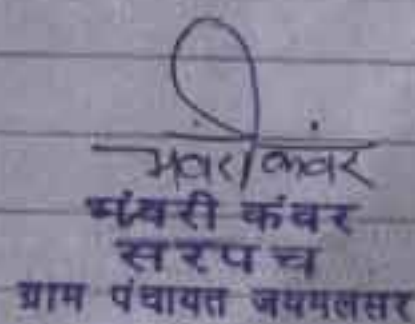 भंवरी कंवर
भंवरी कंवर
सरपंच
ग्राम पंचायत जयमलसर